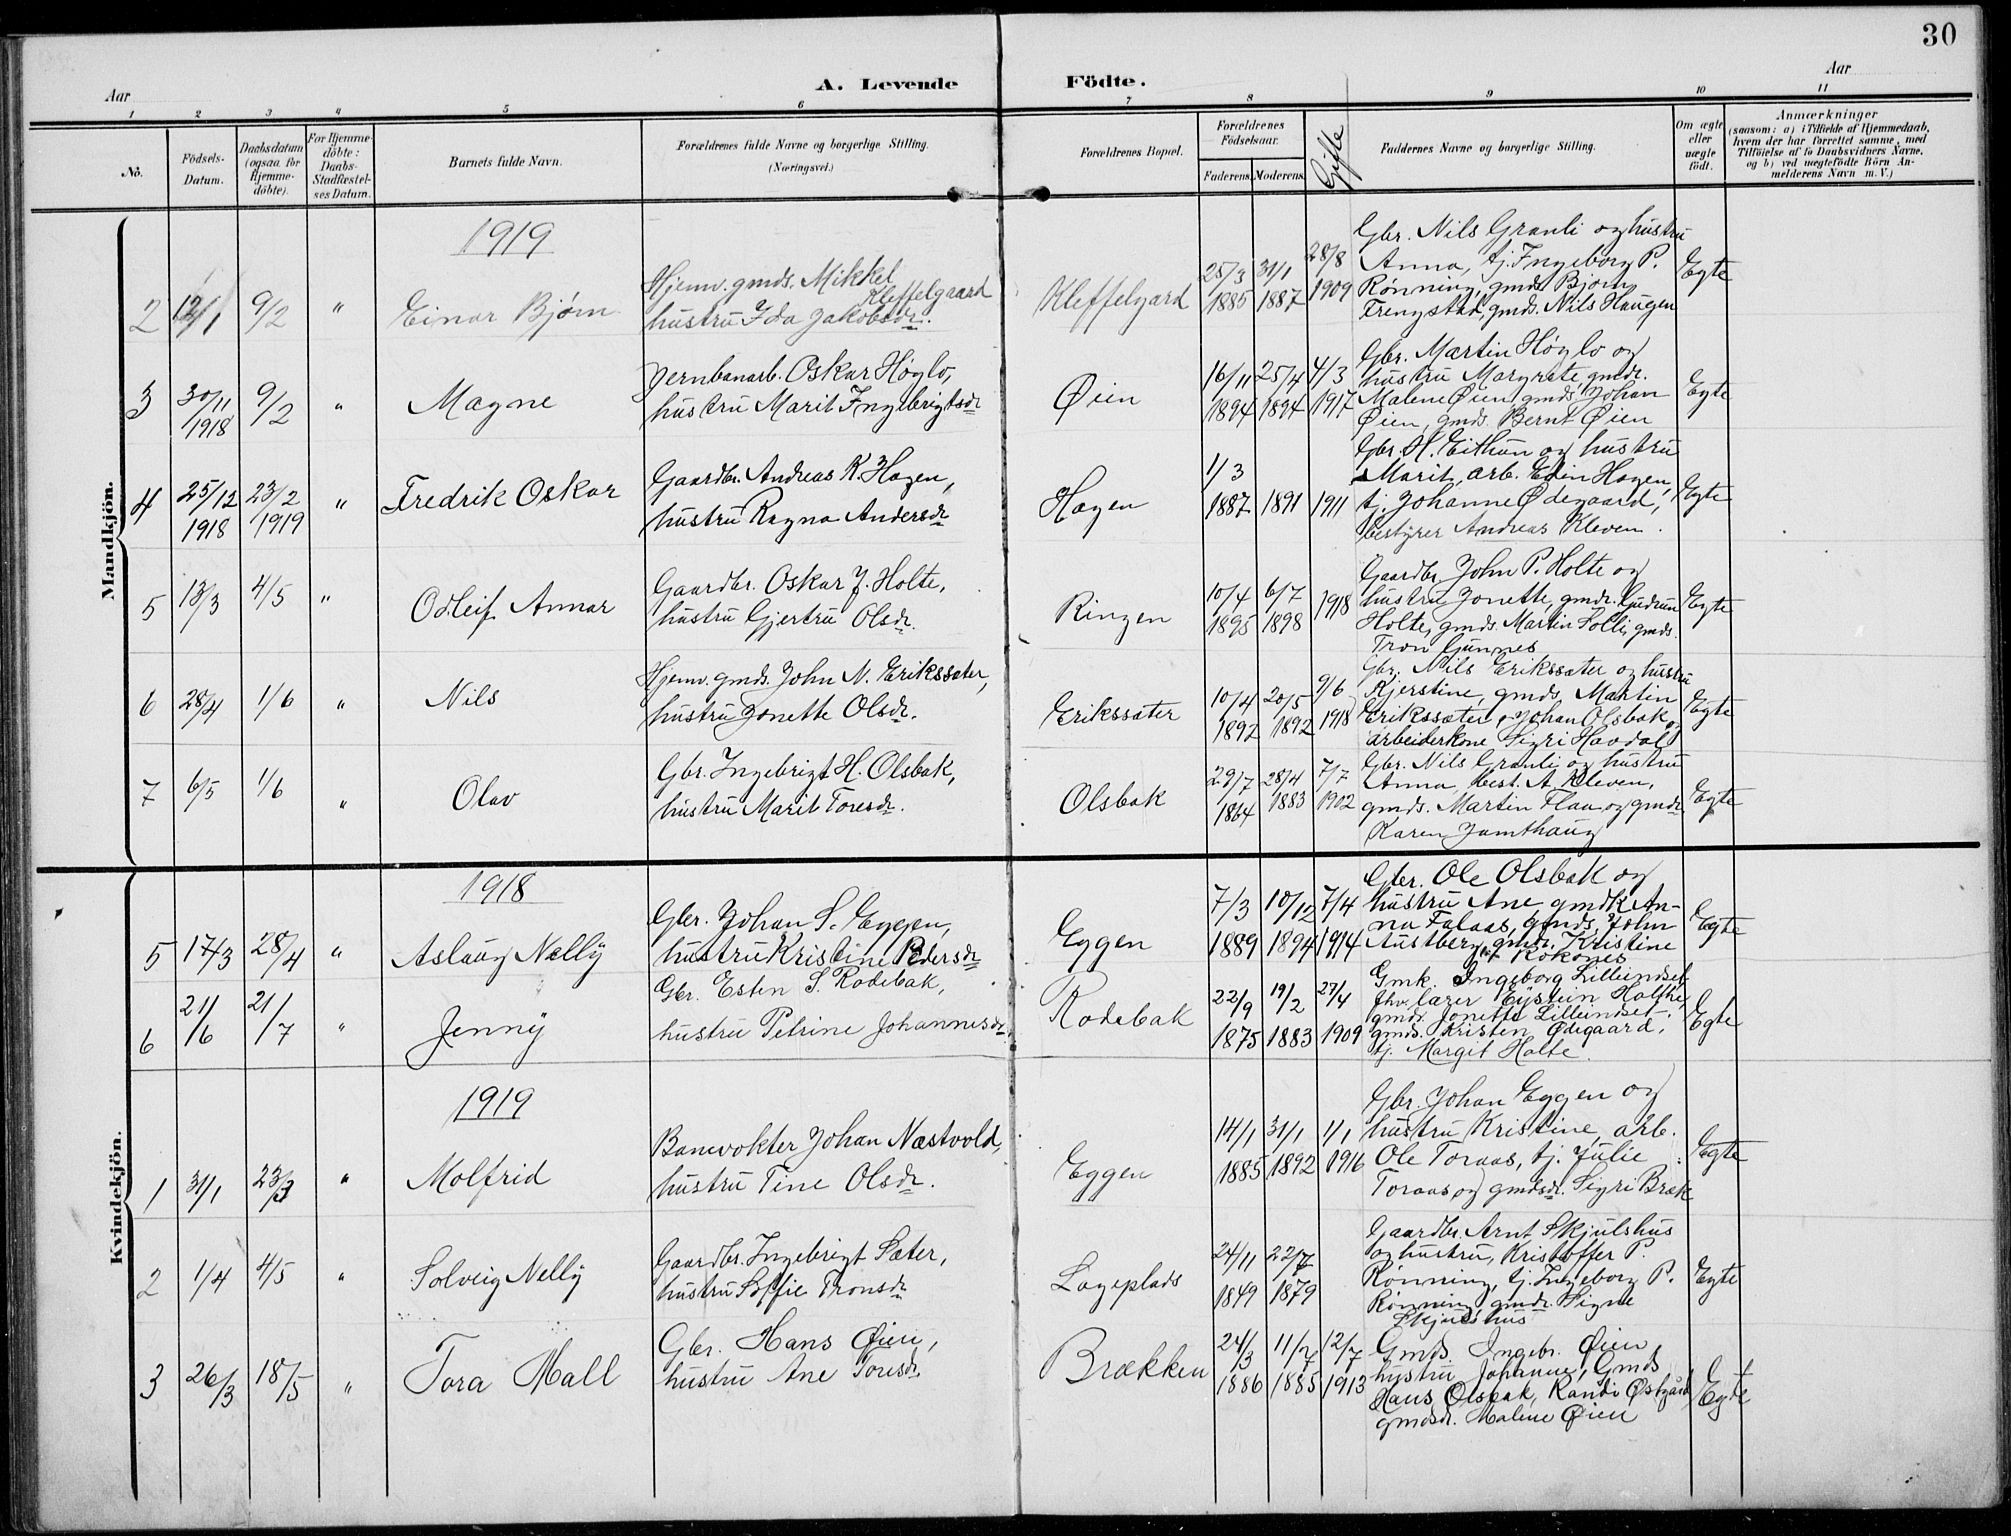 30
A. Levende Födte.
Aar
Aar
1 2 3 4 5 6 7 8 9 10 11
No.
Födsels-Datum.
Daabsdatum (ogsaa for Hjemme-döbte).
For Hjemme-döbte: Daabs-Stadfæstel-ses Datum.
Barnets fulde Navn.
Forældrenes fulde Navne og borgerlige Stilling.
(Næringsvei.)
Forældrenes Bopæl.
Forældrenes Födselsaar.
Faderens. Moderens.
Gifte
Faddernes Navne og borgerlige Stilling.
Om ægte eller uægte födt.
Anmærkninger
(saasom: a) i Tilfælde af Hjemmedaab,
hvem der har forrettet samme, med
Tilföielse af to Daabsvidners Navne,
og b) ved uægtefödte Börn An-
melderens Navn m. V.)
Mandkjön.
1919
2 12/1 9/2 " Einar Bjørn
Hjemv. gmds. Mikkel Kleffelgaard
hustru Ida Jakobsdr.
Kleffelgard
25/3 1885 31/1 1887 28/8 1909
Gbr. Nils Granli og hustru
Anna, tj. Ingeborg P.
Rønning, gmds. Bjorn
Trengstad, gmds. Nils Haugen
Egte
3 30/11 1918 9/2 " Magne
Jernbanarb. Oskar Høglo,
hustru Marit Ingebrigtsdr
Øien
16/11 1894 25/4 1894 4/3 1917
Gbr. Martin Høglo og
hustru Margrete, gmdr.
Malene Øien, gmds. Johan
Øien, gmds. Bernt Øien
Egte
4 25/12 1918 23/2 1919 " Fredrik Oskar
Gaardbr. Andreas K. Hagen,
hustru Ragna Andersdr
Hagen
1/3 1887 1891 1911
Gbr. H. Eithun og hustru
Marit, arb. Edin Hagen,
tj. Johanne Ødegaard,
bestyrer Andreas Kleven.
Egte
5 13/3 4/5 " Odleif Annar
Gaardbr. Oskar J. Holte,
hustru Gjertru Olsdr.
Ringen
10/4 1895 6/7 1898 1918
Gaardbr. John P. Holte og
hustru Jonette, gmdr. Gudrun
Holte, gmds. Martin Solli, gmds.
Tron Gunnes
Egte
6 28/4 1/6 " Nils
Hjemv. gmds. John N. Erikssæter,
hustru Jonette Olsdr.
Erikssæter
10/4 1897 20/5 1892 9/6 1918
Gbr. Nils Erikssæter og hustru
Kjerstine, gmds. Martin
Erikssæter, Johan Olsbak og
arbeiderkone Sigri Havdal
Egte
7 6/5 1/6 " Olav
Gbr. Ingebrigt H. Olsbak,
hustru Marit Toresdr.
Olsbak
29/7 1864 28/4 1883 7/7 1902
Gbr. Nils Granli og hustru
Anna, best. A. Kleven,
gmds. Martin Flaa og gmdr
Karen Jamthaug
Egte
Kvindekjön.
1918
5 17/3 28/4 " Aslaug Nelly
Gbr. Johan S. Eggen,
hustru Kristine Pedersdr
Eggen
7/3 1889 10/12 1894 7/4 1914
Gbr. Ole Olsbak og
hustru Ane gmdk An-
na Falaas, gmds. John
Austberg, gmdr. Kristine
Kokones
Egte
6 21/6 21/7 " Jenny
Gbr. Esten S. Rodebak,
hustru Petrine Johannesdr
Rodebak
22/9 1875 19/2 1883 27/4 1909
Gmk. Ingeborg Lillundset
fhv. lærer Eystein Holthe,
gmdr. Jonetta Lillundset,
gmds. Kristen Ødegaard,
tj. Margit Holte.
Egte
1919
1 31/1 23/3 " Molfrid
Banevokter Johan Næstvold,
hustru Tine Olsdr.
Eggen
14/1 1885 31/1 1892 1/1 1916
Gbr. Johan Eggen og
hustru Kristine, arb.
Ole Toraas, tj. Julie
Toraas og gmdsdr. Sigri Bræk
Egte
2 1/4 4/5 " Solveig Nelly
Gaardbr. Ingebrigt Sæter,
hustru Soffie Tronsdr
Lageplads
24/11 1849 22/7 1879
Gaardbr. Arnt Skjulshus
og hustru, Kristoffer P.
Rønning, tj. Ingeborg P.
Rønning, gmdr. Signe
Skjulshus
Egte
3 26/3 18/5 " Tora Mall
Gbr. Hans Øien,
hustru Ane Toresdr.
Brækken
24/3 1886 11/7 1885 12/7 1913
Gmds Ingebr. Øien,
hustru Johanne, Gmds
Hans Olsbak, Randi Østgård,
gmdsdr. Malene Øien
Egte